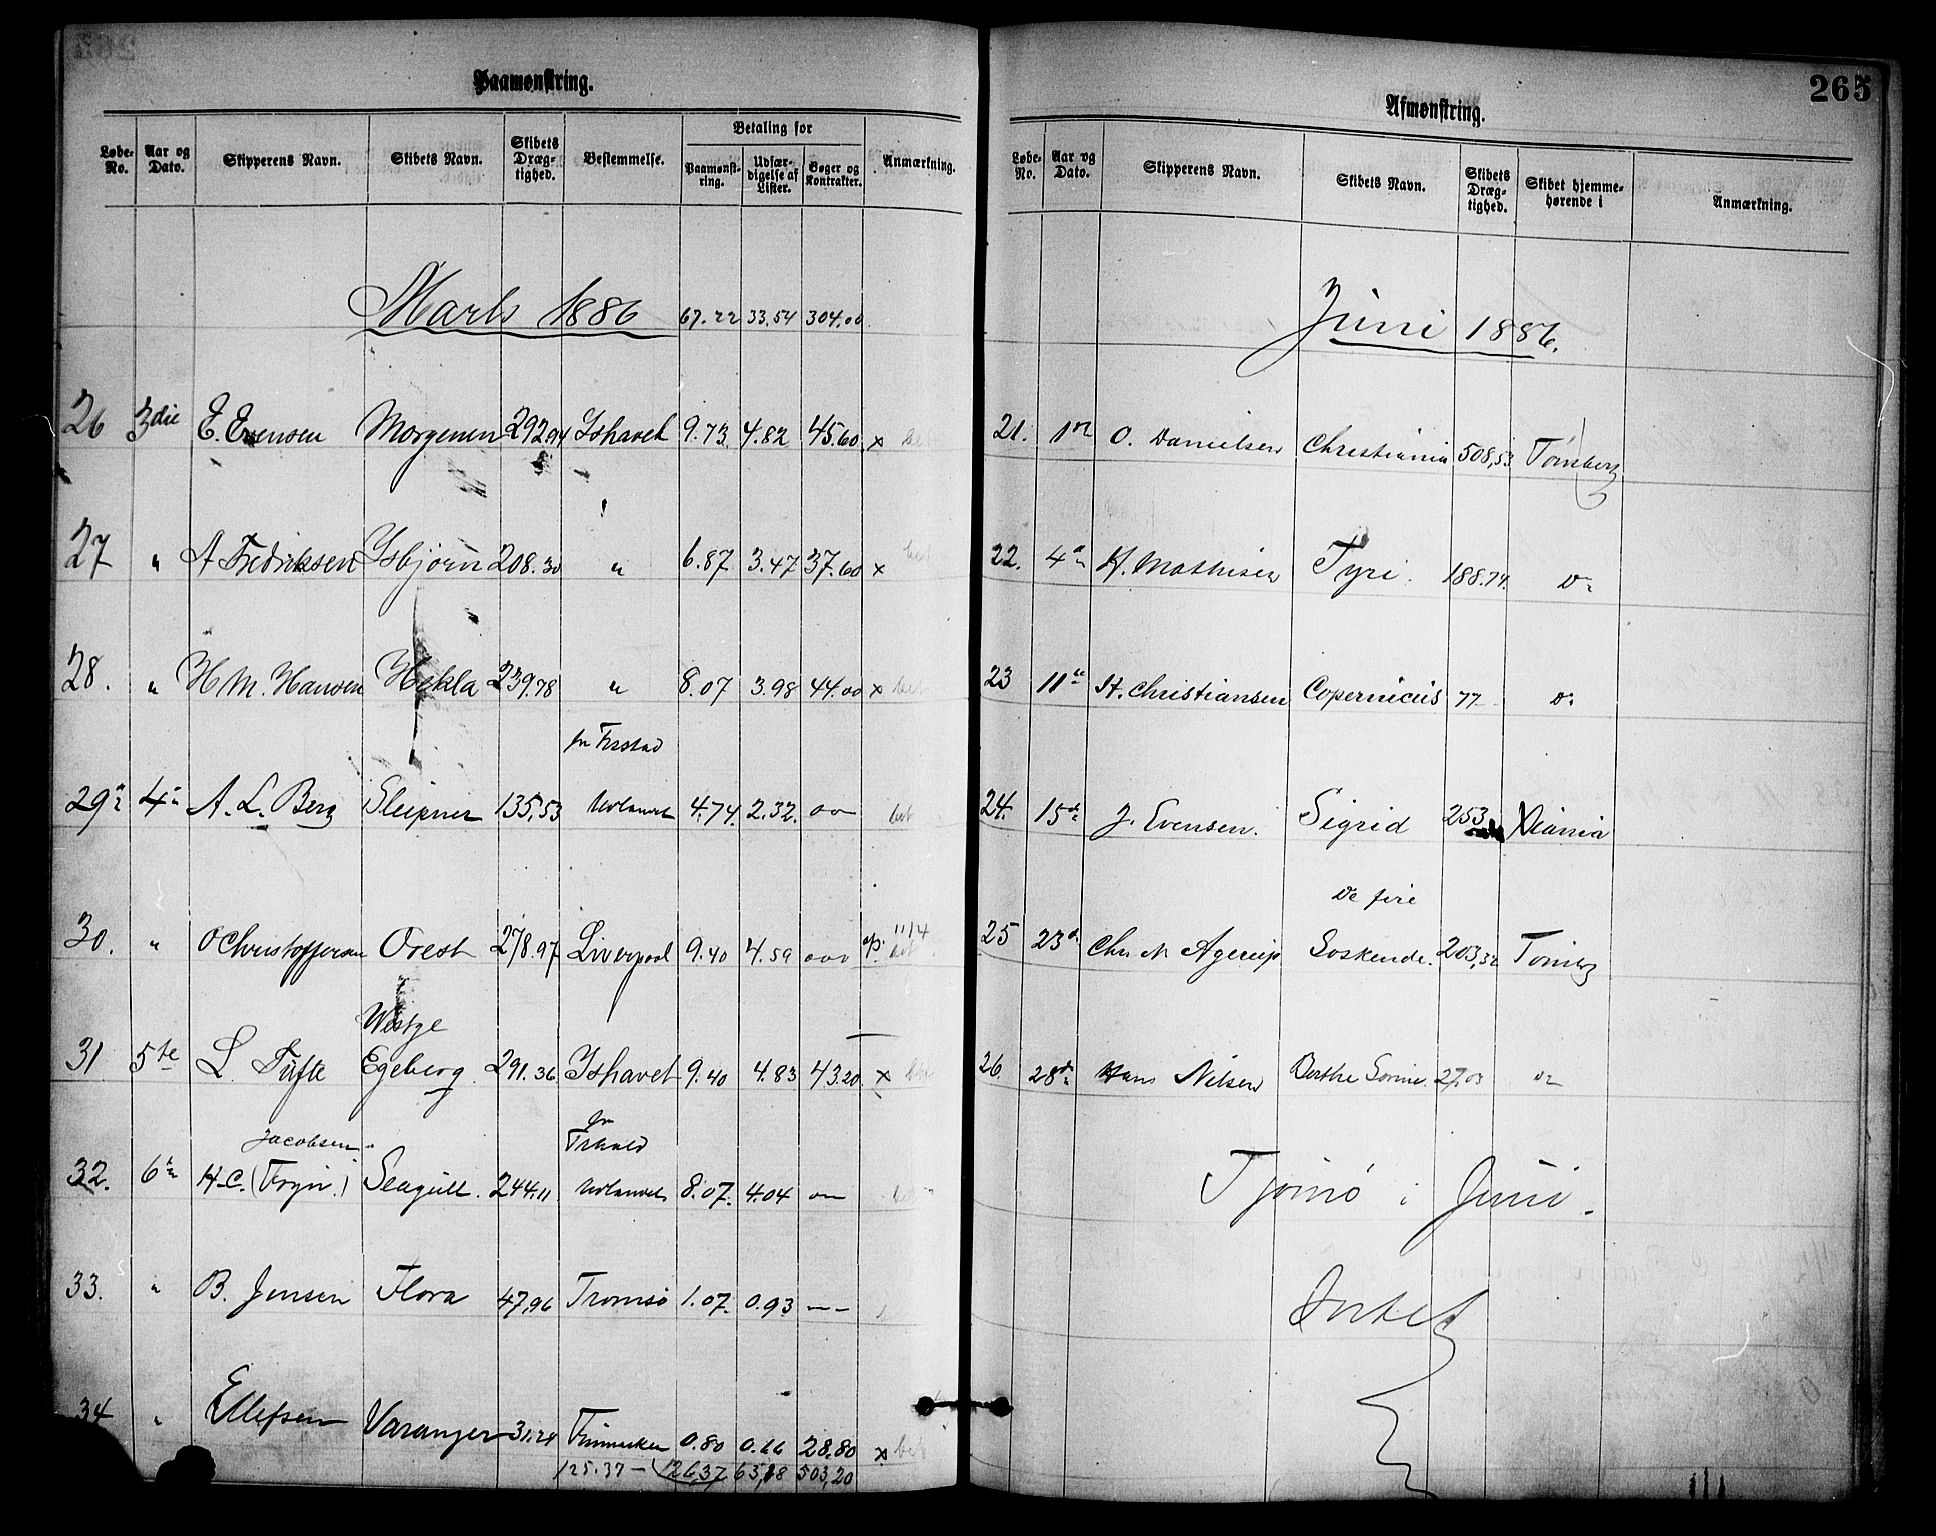 Paamønstring.
Løbe-No. Aar og Dato. Skipperens Navn. Skibets Navn. Skibets Dræg-tighed. Bestemmelse. Betaling for Paamønst-ring. Udfær-digelse af Lister. Bøger og Kontrakter. Anmærkning.
Marts 1886 67.22 33.54 304.00
26 3die E. Evensen Morgenen 292.94 Ishavet 9.73 4.82 45.60 x
27 " A Fredriksen Isbjørn 208.30 " 6.87 3.47 37.60 x bet
28. " H M. Hansen Hekla 239.78 " 8.07 3.98 44.00 x bet
29 4 A. L. Berg Sleipner 135,53 fr Frstad Udlandet 4.74. 2.32. bet
30. " O Christoffersen Orest 278.97 Liverpool 9.40 4.59 11/4 bet
31 5te L. Tufte Westye Egeberg 291.36 Ishavet 9.40 4.83 43.20 x bet
32. 6 H. C. Jacobsen (Foyn.) Seagull. 244.11 fr Frhald Udlandet 8.07. 4.04
33. " B. Jensen Flora 47,96 Tromsø 1.07. 0.93 – –
34 " Ellefsen Varanger 31.24 Finmarken 0.80 0.66 28.80 x bet
125.37 – 126,37 65,18 503,20
265
Afmønstring.
Løbe-No. Aar og Dato. Skipperens Navn. Skibets Navn. Skibets Dræg-tighed. Skibet hjemme-hørende i Anmærkning.
Juni 1886.
21. 1 O. Danielsen Christiania 508,53 Tønsberg
22. 4 H. Mathisen Tyri. 188.74. do
23 11te H. Christiansen Copernicus 77 do
24. 15de J. Evensen. Sigrid 253 Xiania
25 23de Chr. M Agerup De fire Søskende. 203,32 Tønsberg
26. 28de Hans Nilsen Berthe Sorine. 27,03 do
Tjømø i Juni.
Intet